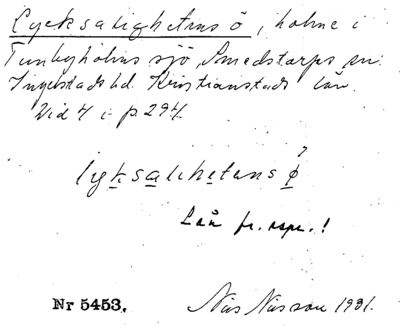 Lycksalighetens ö, holme i
Tunbyholms sjö, Smedstorps sn.
Ingelstads hd. Kristianstads län.
Vid 4 i p. 294.
lyksalihetens ø
Lån fr. rspr.!
Nr 5453. Nils Nilsson 1931.